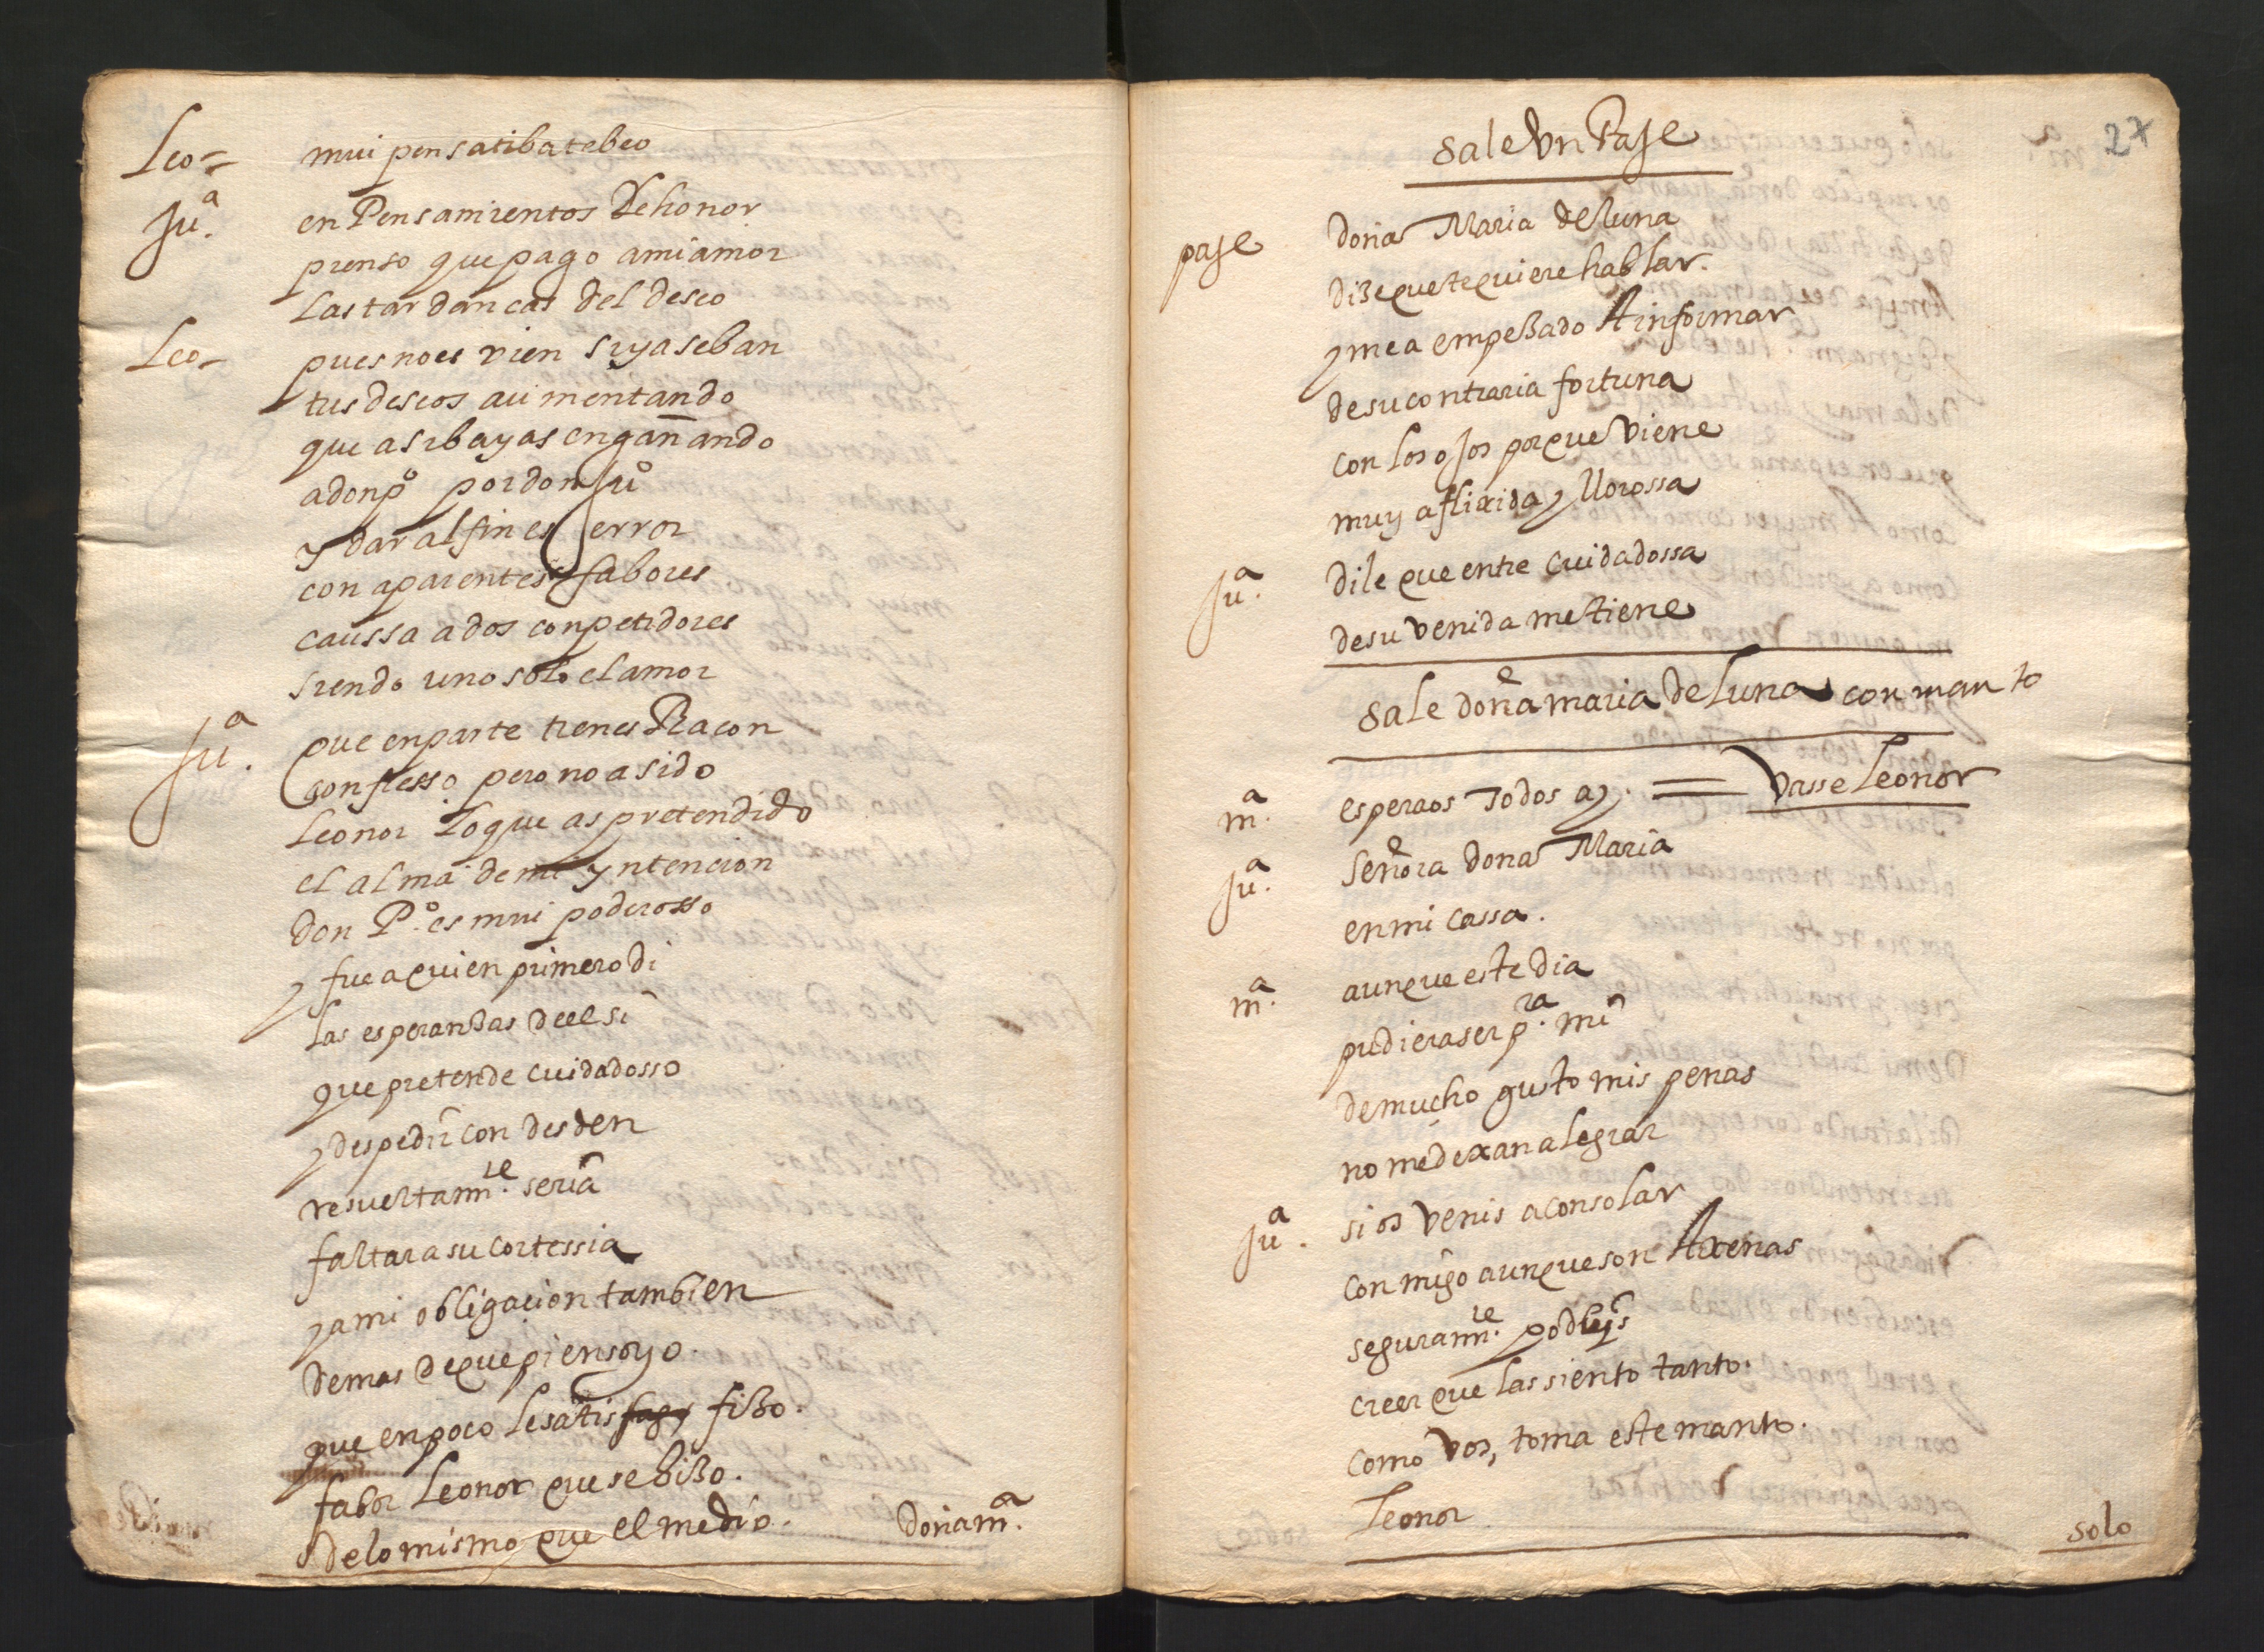 Leo= mui pensatiba te beo
Ju.ª en Pensamientos de honor
pienso que pago a mi amor
las tardancas del deseo
Leo- pues no es vien si ya se ban
tus deseos aumentando
que asi bayas engañando
a don p.º por don Ju.º
y dar al fin es error
con aparentes fabores
caussa a dos conpetidores
siendo uno solo el amor
Ju.ª que en parte tienes Racon
confiesso pero no a sido
Leonor lo que as pretendido
el alma de mi yntencion
don P.º es mui poderosso
y fue a quien primero di
las esperanzas de el si
que pretende cuidadosso
y despedir con desden
resueltam.te seria
faltar a su cortessia
y a mi obligacion tambien
demas de que pienso yo
que en poco le satis fizo.
fabor Leonor que se hizo.
de lo mismo que el me dio.
Doña m.ª
27
Sale Vn Paje
paje doña Maria de luna
dize que te quiere hablar.
y me a empezado A informar
de su contraria fortuna
con los ojos porque Viene
muy aflixida y llorossa
Ju.ª dile que entre cuidadossa
de su venida me tiene
Sale doña maria de Luna con manto
m.ª esperaos Todos ay. = Vasse Leonor
Ju.ª Señora doña Maria
en mi cassa.
m.ª aunque este dia
pudiera ser p.ra mi
de mucho gusto mis penas
no me dexan alegrar
Ju.ª si os venis a consolar
con migo aunque son Axenas
seguram.te podeis
creer que las siento tanto.
como Vos, toma este manto.
Leonor
solo